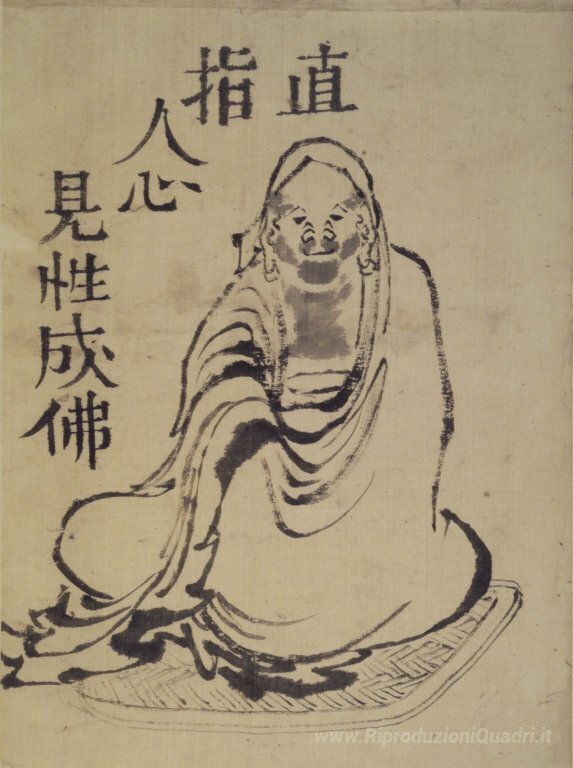 直指
人心
見性成佛
www.RiproduzioniQuadri.it